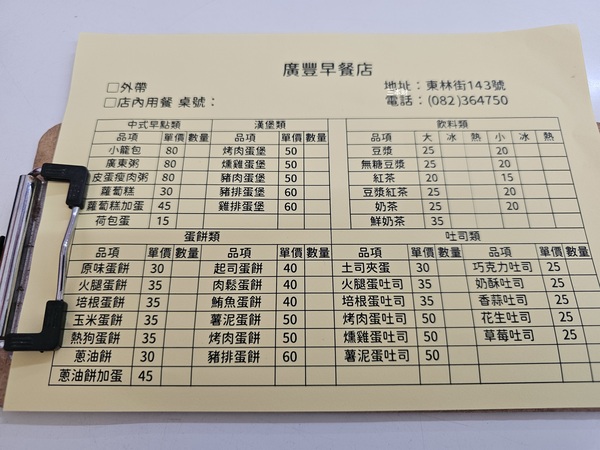 廣豐早餐店
□外帶 地址：東林街143號
□店內用餐 桌號： 電話：(082)364750
中式早點類 漢堡類 飲料類
品項 單價 數量 品項 單價 數量 品項 大 冰 熱 小 冰 熱
小籠包 80 烤肉蛋堡 50 豆漿 25 20
廣東粥 80 燻雞蛋堡 50 無糖豆漿 25 20
皮蛋瘦肉粥 80 豬肉蛋堡 50 紅茶 20 15
蘿蔔糕 30 豬排蛋堡 60 豆漿紅茶 25 20
蘿蔔糕加蛋 45 雞排蛋堡 60 奶茶 25 20
荷包蛋 15 鮮奶茶 35
蛋餅類 吐司類
品項 單價 數量 品項 單價 數量 品項 單價 數量 品項 單價 數量
原味蛋餅 30 起司蛋餅 40 土司夾蛋 30 巧克力吐司 25
火腿蛋餅 35 肉鬆蛋餅 40 火腿蛋吐司 35 奶酥吐司 25
培根蛋餅 35 鮪魚蛋餅 40 培根蛋吐司 35 香蒜吐司 25
玉米蛋餅 35 薯泥蛋餅 50 烤肉蛋吐司 50 花生吐司 25
熱狗蛋餅 35 烤肉蛋餅 50 燻雞蛋吐司 50 草莓吐司 25
蔥油餅 30 豬排蛋餅 60 薯泥蛋吐司 50
蔥油餅加蛋 45